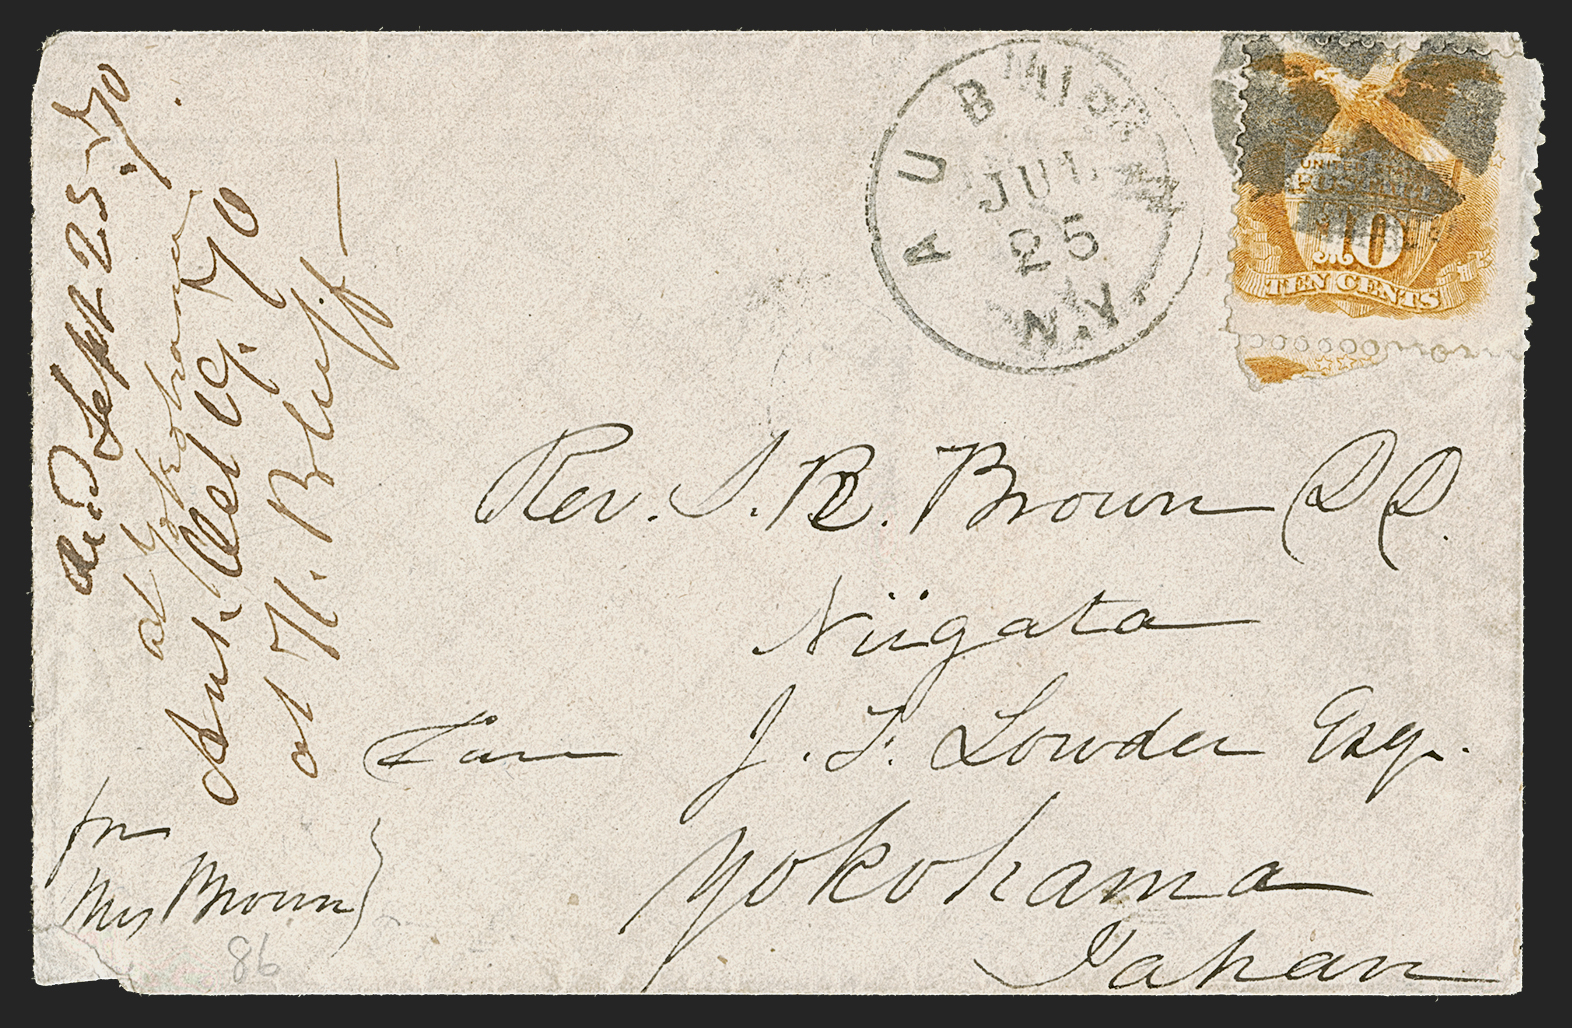 AUBURN
JUL
25
N.Y.
UNITED STATES
POSTAGE
10
TEN CENTS
Rev. S. R. Brown D D.
Niigata
Care J. F. Lowder Esq.
Yokohama
Japan
for
Mrs Brown
86
Sept 25. 70.
at Yokohama.
Ans. Oct 19. 70
at H. Bluff